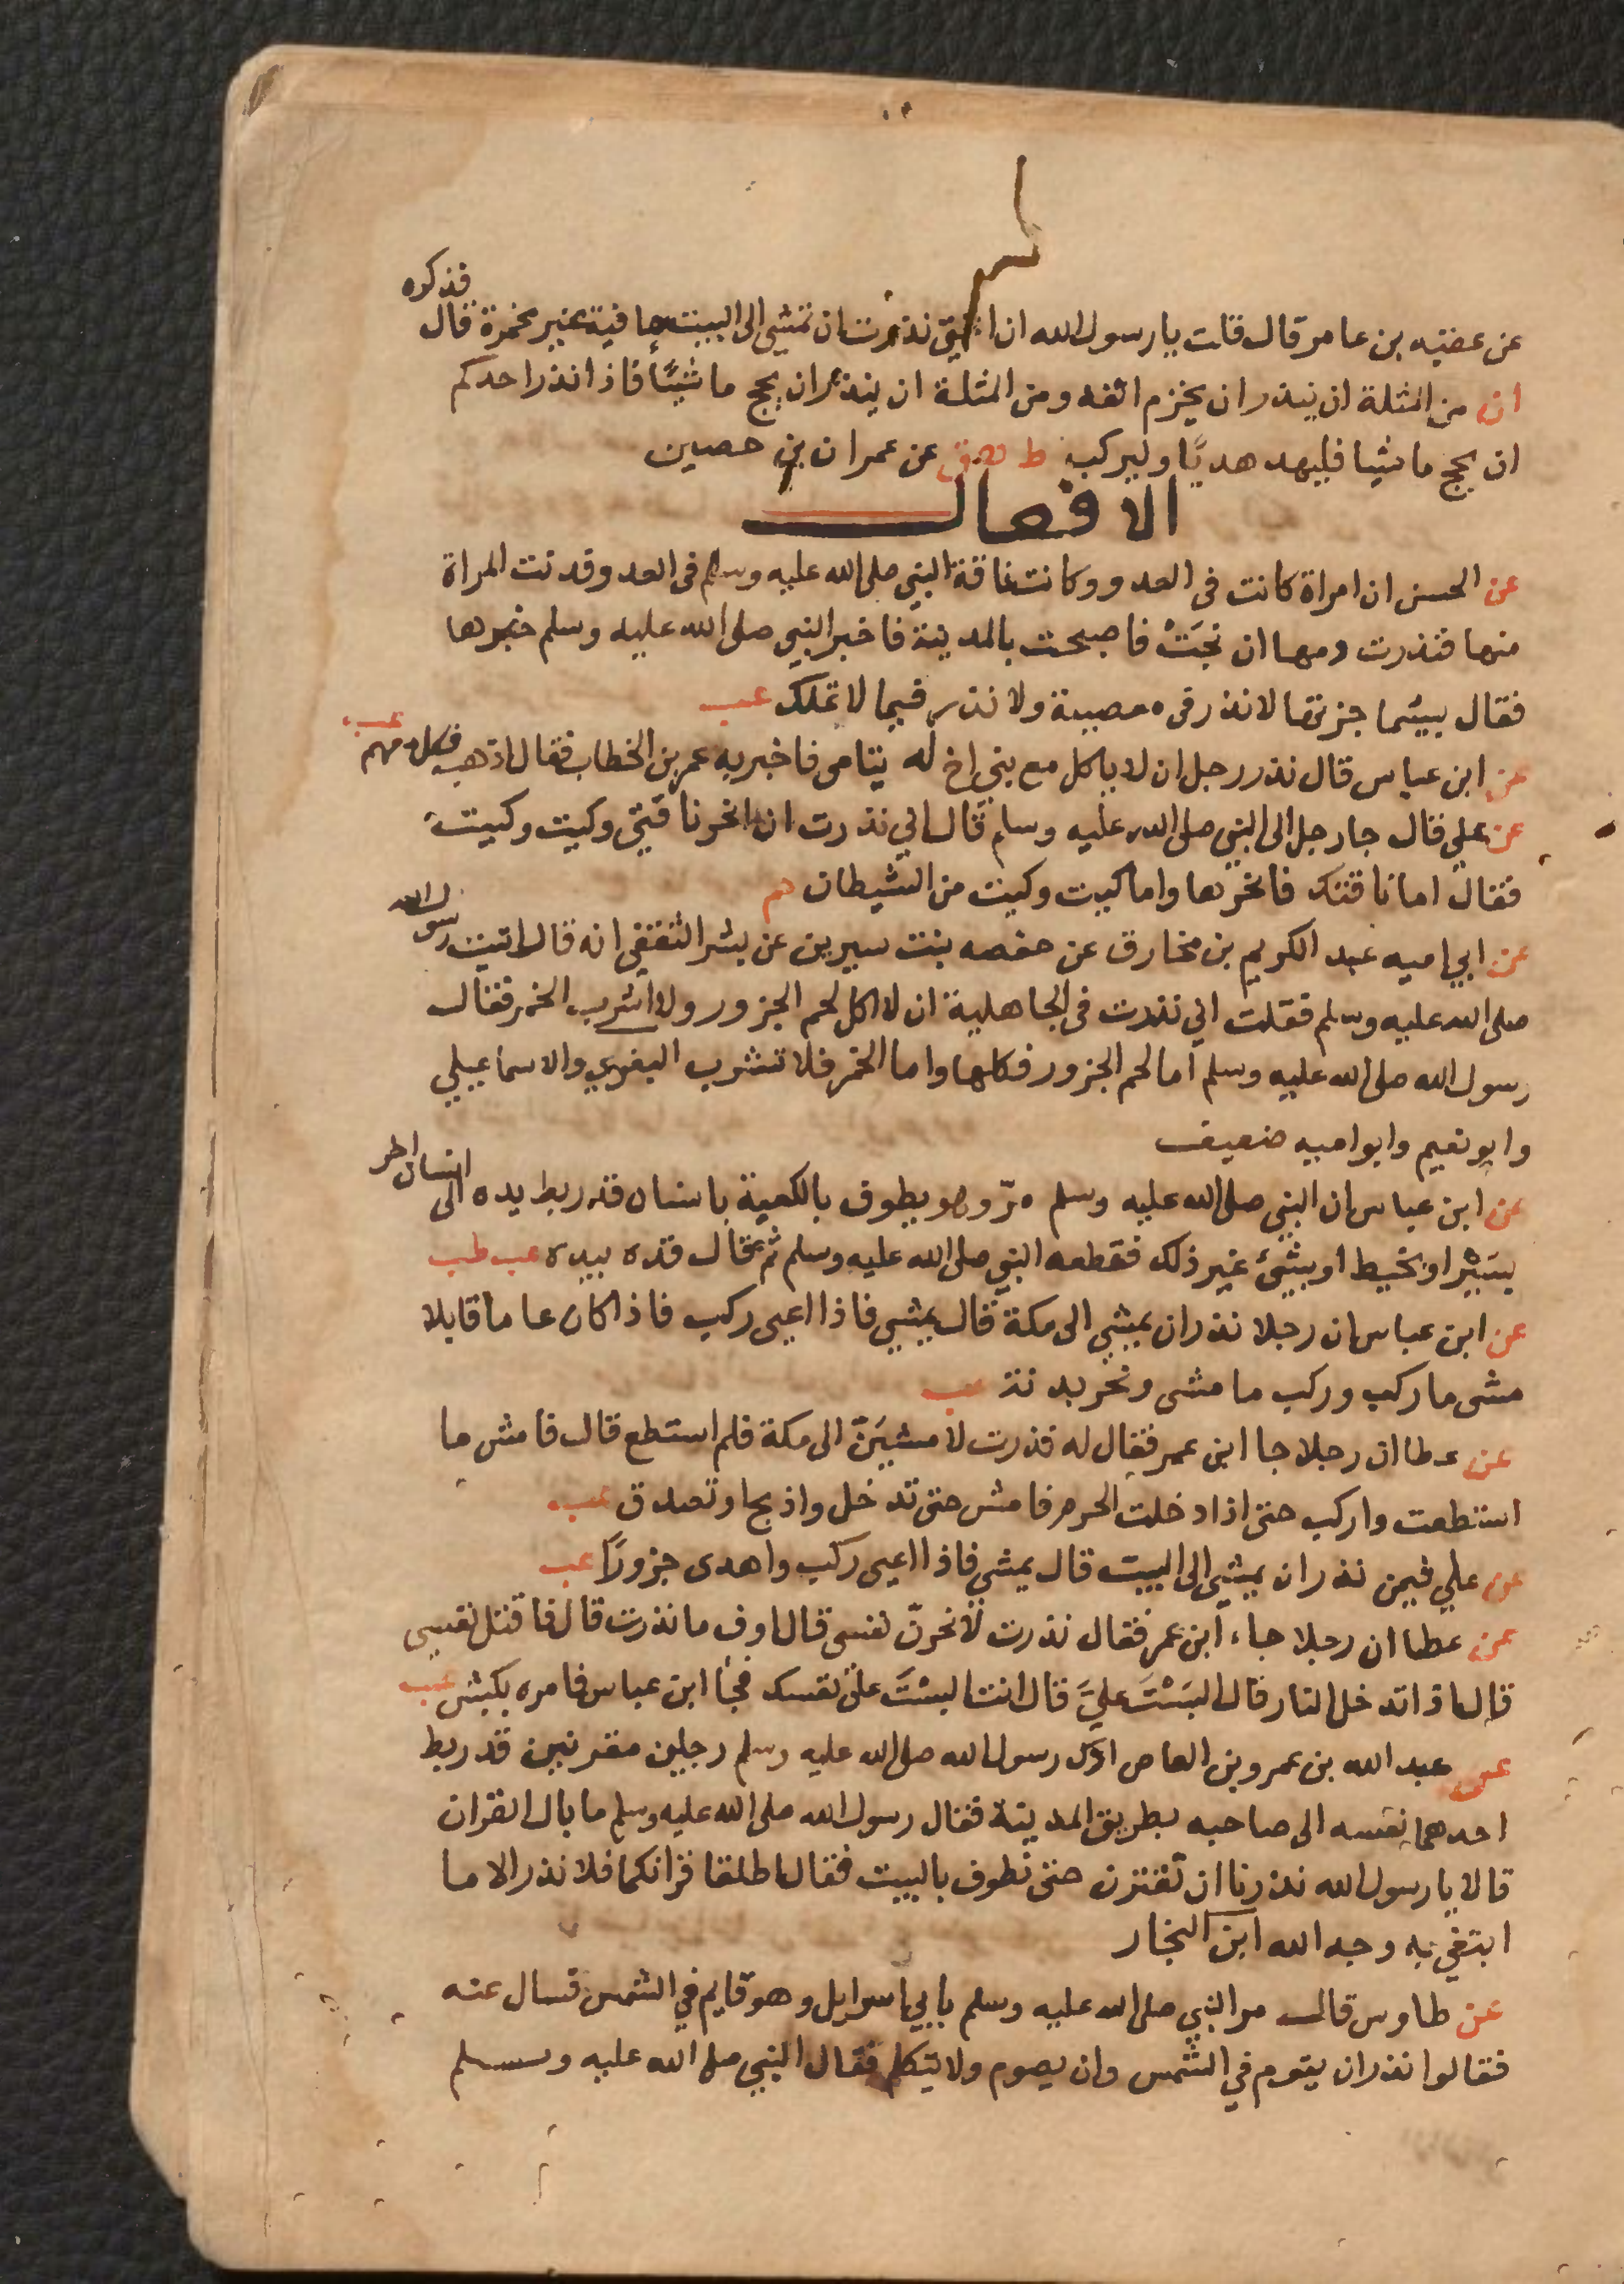 عن عقبه بن عامر قال قلت يا رسول الله ان اختى نذرت ان تمشي الى البيت حافية غير مخمرة قال فذكره
ان من المثلة ان ينذر ان يخزم انفه ومن المثلة ان ينذر ان يحج ماشيًا فاذا نذر احدكم
ان يحج ماشيا فليهد هديًا وليركب ط ق عن عمران بن حصين
الافعال
عن الحسن ان امراة كانت في العدو وكانت ناقة النبي صلى الله عليه وسلم فى العدو قد نت المراة
منها فنذرت دمها ان نجَتْ فاصبحت بالمدينة فاخبر النبي صلى الله عليه وسلم خبرها
فقال بيسما جزتها لا نذر فى معصية ولا نذر فيما لا تملك عب
عن ابن عباس قال نذر رجل ان لا ياكل مع بني اخ له يتامى فاخبر به عمر بن الخطاب فقال اذهب فكل معهم عب
عن علي قال جا رجل الى النبي صلى الله عليه وسلم قال اني نذرت ان انحر ناقتي وكيت وكيت
فقال اما ناقتك فانحرها واما كيت وكيت من الشيطان حم
عن ابي اميه عبد الكريم بن مخارق عن حفصه بنت سيرين عن بشر الثقفى انه قال اتيت رسول الله
صلى الله عليه وسلم فقلت اني نذرت فى الجاهلية ان لا اكل لحم الجزور ولا اشرب الخمر فقال
رسول الله صلى الله عليه وسلم اما لحم الجزور فكلها واما الخمر فلا تشرب البغوي والاسماعيلي
وابو نعيم وابو اميه ضعيف
عن ابن عباس ان النبي صلى الله عليه وسلم مرّ وهو يطوف بالكعبة بانسان قد ربط يده الى انسان اخر
بسَيْر او بخيط او بشيئ غير ذلك فقطعه النبي صلى الله عليه وسلم ثم قال قده بيده عب طب
عن ابن عباس ان رجلا نذر ان يمشي الى مكة قال يمشي فاذا اعيى ركب فاذا كان عاما قابلا
مشى ما ركب وركب ما مشى ونحر بدنة عب
عن عطا ان رجلا جا ابن عمر فقال له نذرت لامشيَنّ الى مكة فلم استطع قال فامش ما
استطعت واركب حتى اذا دخلت الحرم فامش حتى تدخل واذبح او تصدق عب
عن علي فيمن نذر ان يمشي الى البيت قال يمشي فاذا اعيى ركب واهدى جزورًا عب
عن عطا ان رجلا جاء ابن عمر فقال نذرت لانحرنّ نفسى قال اوف ما نذرت قال فاقتل نفسي
قال اذا تدخل النار قال البَسْتَ عليَّ قال انت البسْتَ على نفسك فجا ابن عباس فامره بكبش عب
عن عبد الله بن عمرو بن العاص ادرك رسول الله صلى الله عليه وسلم رجلين مقرنين قد ربط
احدهما نفسه الى صاحبه بطريق المدينة فقال رسول الله صلى الله عليه وسلم ما بال القران
قالا يا رسول الله نذرنا ان نقترن حتى نطوف بالبيت فقال اطلقا قرانكما فلا نذر الا ما
ابتغي به وجه الله ابن النجار
عن طاوس قال مر النبي صلى الله عليه وسلم بابي اسرايل وهو قايم في الشمس فسال عنه
فقالوا نذر ان يقوم في الشمس وان يصوم ولا يتكلم فقال النبي صلى الله عليه وسلم